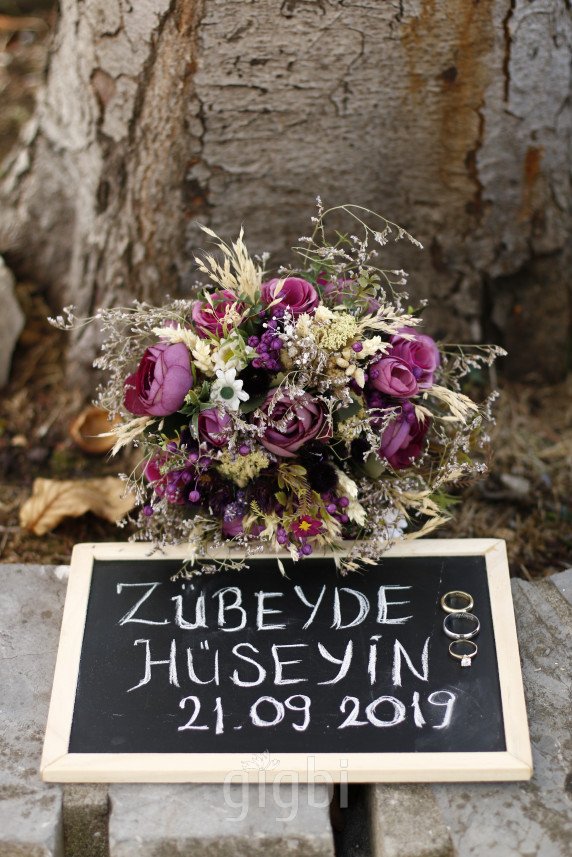 ZÜBEYDE
HÜSEYİN
21.09.2019
gigbi